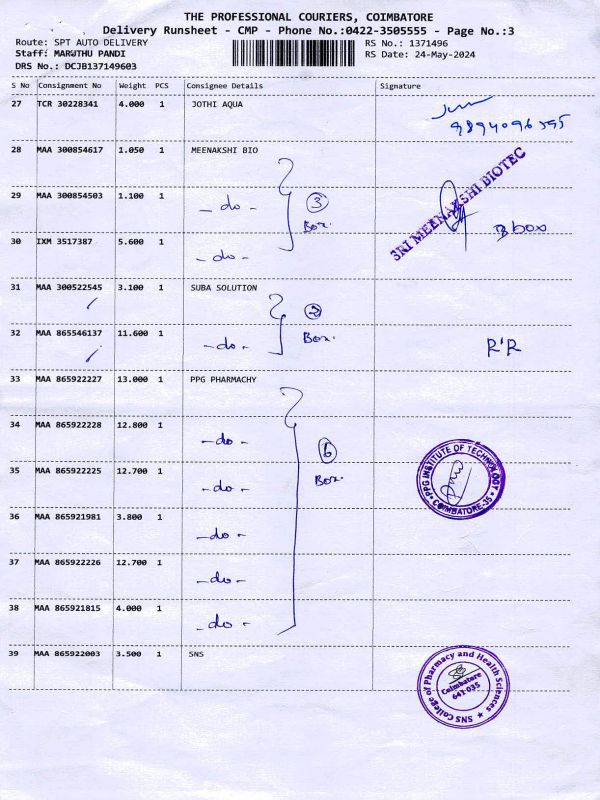 THE PROFESSIONAL COURIERS, COIMBATORE
Delivery Runsheet - CMP - Phone No.:0422-3505555 - Page No.:3
Route: SPT AUTO DELIVERY RS No.: 1371496
Staff: MARUTHU PANDI RS Date: 24-May-2024
DRS No.: DCJB137149603
S No Consignment No Weight PCS Consignee Details Signature
27 TCR 30228341 4.000 1 JOTHI AQUA
9894096595
28 MAA 300854617 1.050 1 MEENAKSHI BIO
SRI MEENAKSHI BIOTEC
29 MAA 300854503 1.100 1 - do - 3 Box. 3 box
30 IXM 3517387 5.600 1 - do -
31 MAA 300522545 3.100 1 SUBA SOLUTION
2 Box.
32 MAA 865546137 11.600 1 - do - R'R
33 MAA 865922227 13.000 1 PPG PHARMACHY
34 MAA 865922228 12.800 1 - do -
6 Box.
PPG INSTITUTE OF TECHNOLOGY
COIMBATORE-35
35 MAA 865922225 12.700 1 - do -
36 MAA 865921981 3.800 1 - do -
37 MAA 865922226 12.700 1 - do -
38 MAA 865921815 4.000 1 - do -
39 MAA 865922003 3.500 1 SNS
SNS College of Pharmacy and Health Sciences
Coimbatore
641 035